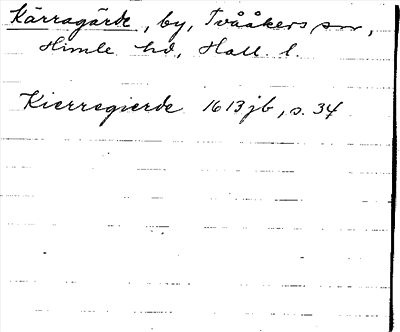 Kärragärde, by, Tvååkers sn,
Himle hd, Hall. l.
Kierregierde 1613 jb, s. 34